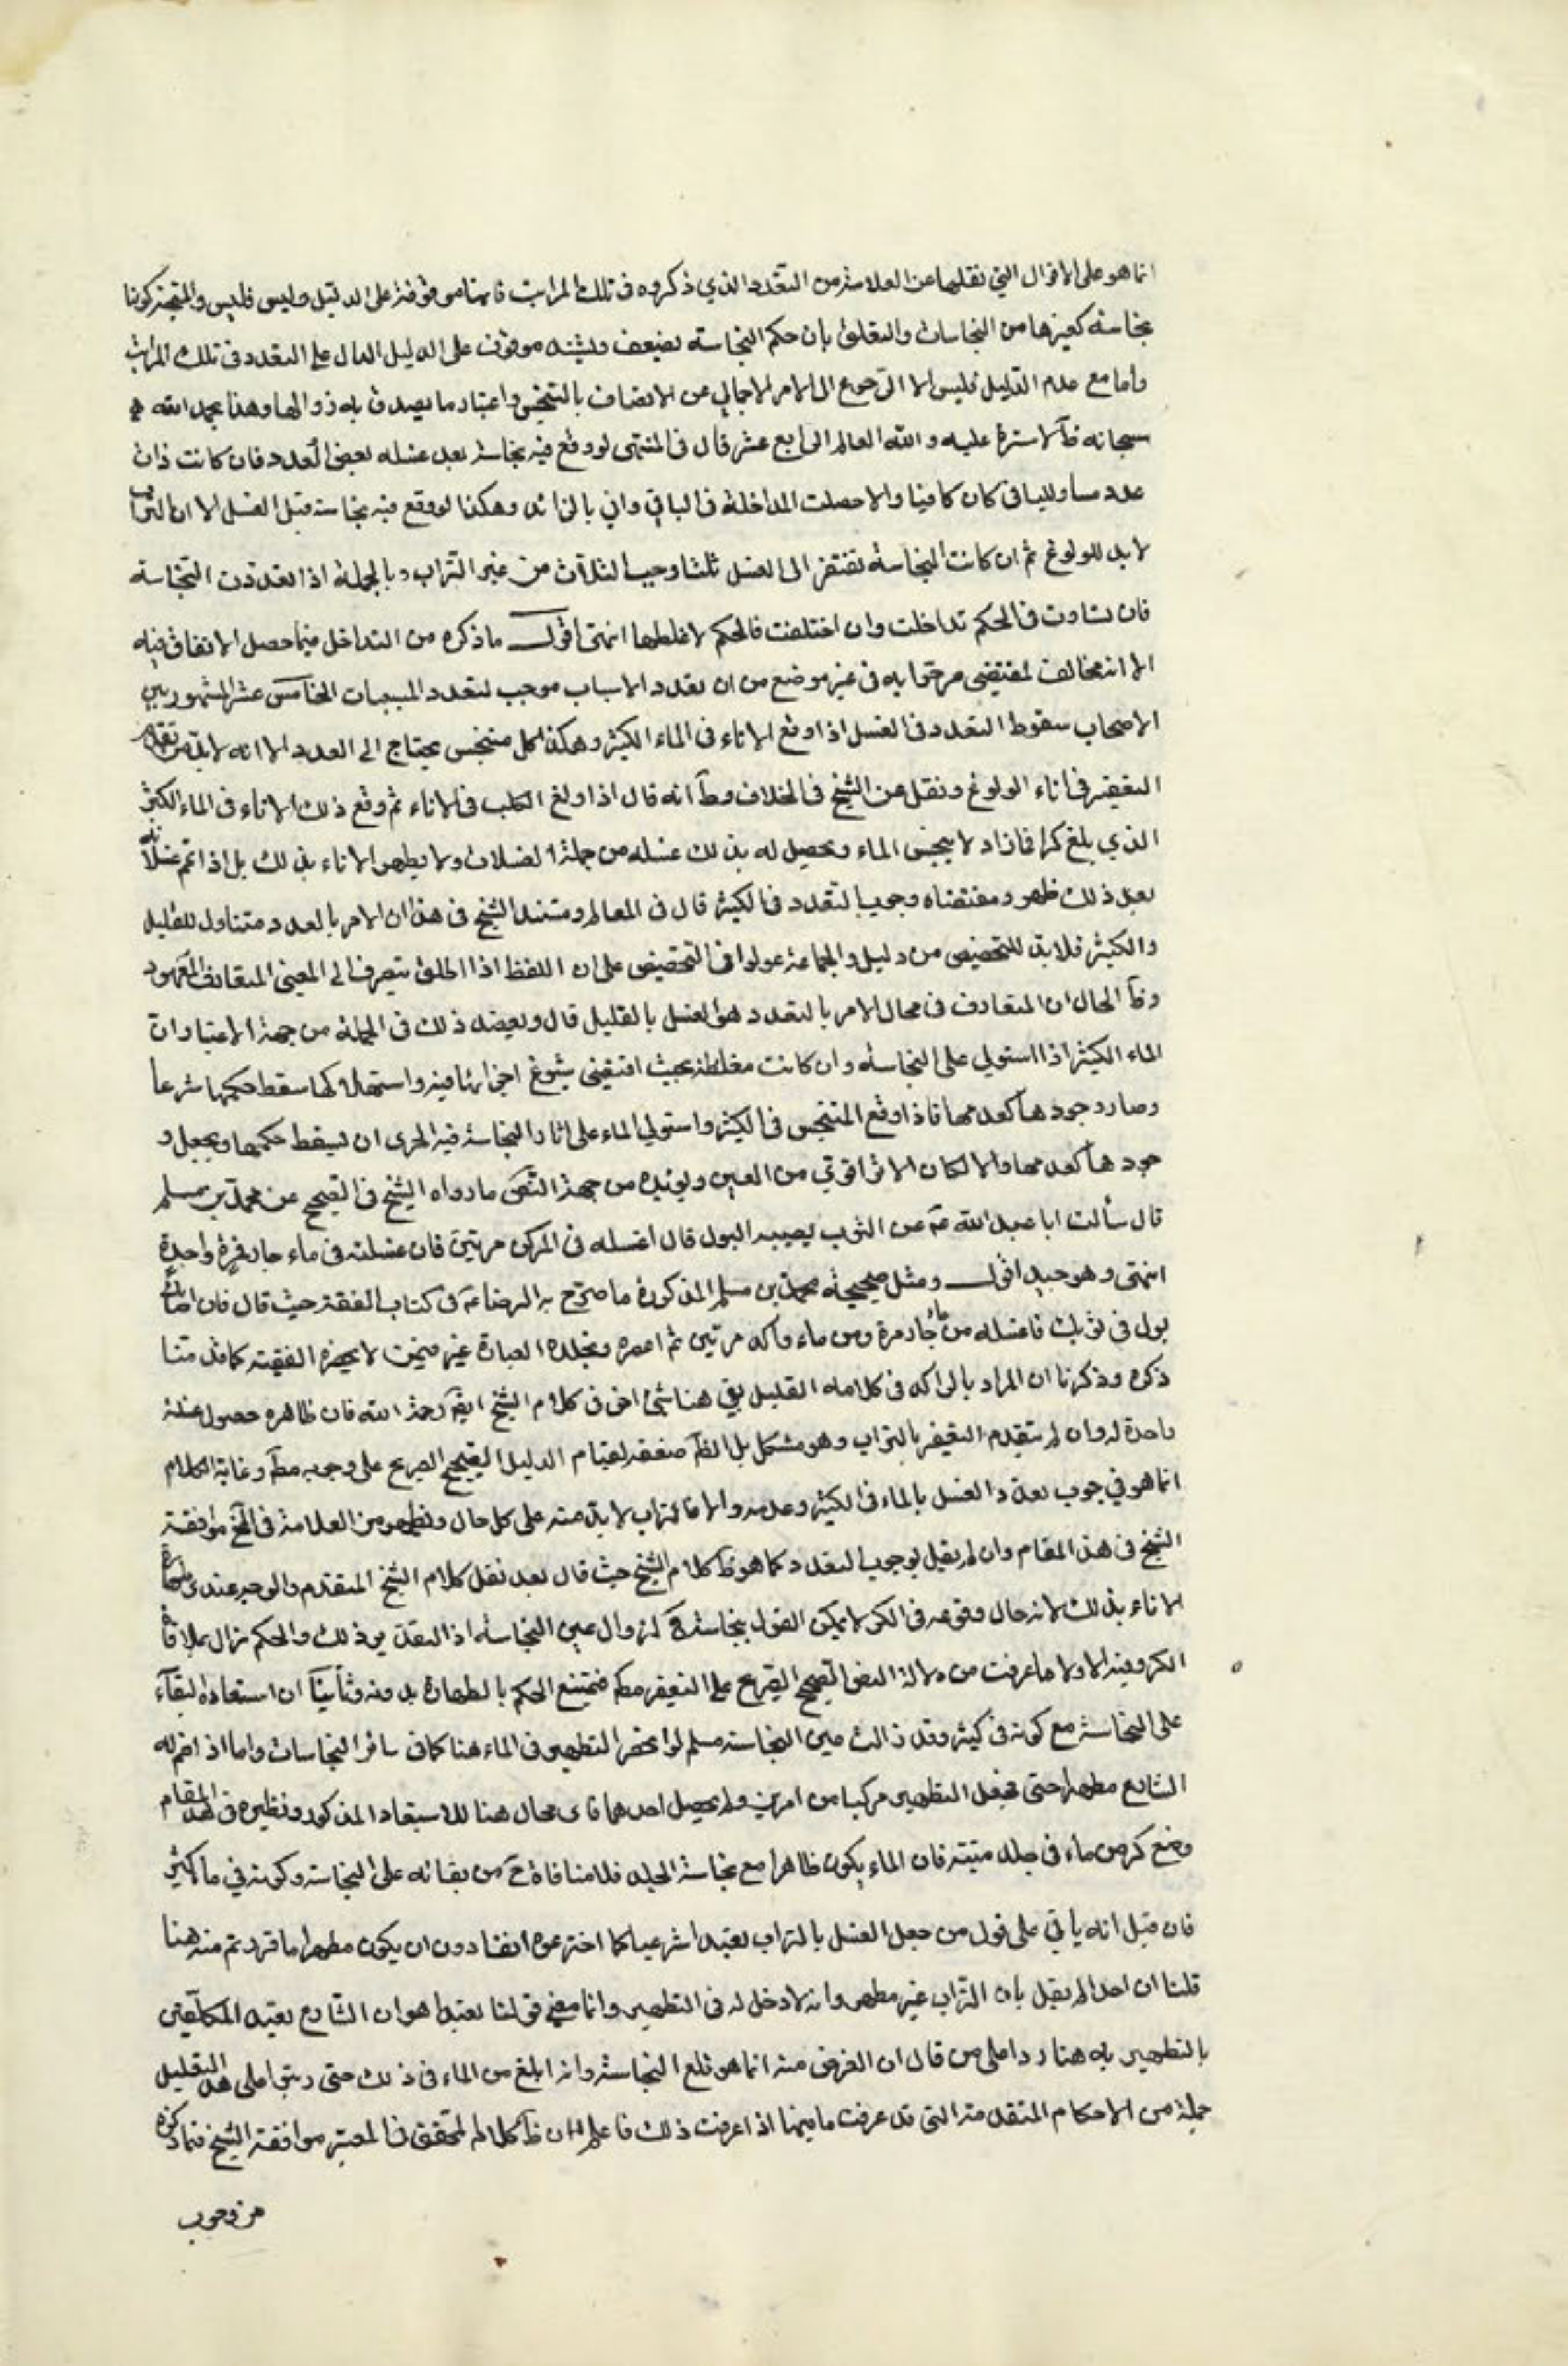 انما هو على الاقوال التي نقلها عن العلامة من التعدد الذي ذكروه في تلك المراتب فانها موقوفة على الدليل وليس فليس والمتجه كونها
نجاسة كغيرها من النجاسات والتعلق بان حكم النجاسة يضعف ويشتد موقوف على الدليل الدال على التعدد في تلك المراتب
واما مع عدم الدليل فليس الا الرجوع الى الامر الاجمالي عن الاتصاف بالتنجس واعتبار ما يصدق به زوالها وهذا بحمد الله
سبحانه ظ لا سترة عليه والله العالم الرابع عشر قال في المنتهى لو وقع فيه نجاسة بعد غسله بعض العدد فان كانت ذات
عدد مساو للباقي كان كافيا والا حصلت المداخلة في الباقي واتي بالزائد وهكذا لو وقع فيه نجاسة قبل الغسل الا ان التراب
لا بد للولوغ ثم ان كانت النجاسة تفتقر الى الغسل ثلثا وجب الثلاث من غير التراب وبالجملة اذا تعددت النجاسة
فان تساوت في الحكم تداخلت وان اختلفت فالحكم لاغلظها انتهى اقول ما ذكره من التداخل فيما حصل الاتفاق فيه
الا انه مخالف لمقتضى ما صرحوا به في غير موضع من ان تعدد الاسباب موجب لتعدد المسببات الخامس عشر المشهور بين
الاصحاب سقوط التعدد في الغسل اذا وقع الاناء في الماء الكثير وهكذا كل متنجس يحتاج الى العدد الا انه لا بد من تقديم
التعفير في اناء الولوغ ونقل عن الشيخ في الخلاف وط انه قال اذا ولغ الكلب في الاناء ثم وقع ذلك الاناء في الماء الكثير
الذي بلغ كرا فازاد لا ينجس الماء ويحصل له بذلك غسله من جملة الغسلات ولا يطهر الاناء بذلك بل اذا تم غسلاته
بعد ذلك طهر ومقتضاه وجوب التعدد في الكثير قال في المعالم ومستند الشيخ في هذا ان الامر بالعدد متناول للقليل
والكثير فلا بد للتخصيص من دليل والجماعة عولوا في التخصيص على ان اللفظ اذا اطلق يتصرف الى المعنى المتعارف المعهود
وظ الحال ان المتعارف في محال الامر بالتعدد هو الغسل بالقليل قال ويعضد ذلك في الجملة من جهة الاعتبار ان
الماء الكثير اذا استولى على النجاسة وان كانت مغلظة بحيث اقتضى شيوع اجزائها فيه واستهلاكها سقط حكمها شرعا
وصار وجودها كعدمها فاذا وقع المتنجس في الكثير واستولى الماء على اثار النجاسة فيه الحرى ان يسقط حكمها ويجعل و
جودها كعدمها والا لكان الاثر اقوى من العين ويؤيده من جهة النص ما رواه الشيخ في الصحيح عن محمد بن مسلم
قال سألت ابا عبد الله ع عن الثوب يصيبه البول قال اغسله في المركن مرتين فان غسلته في ماء جار فمرة واحدة
انتهى وهو جيد اقول ومثل صحيحة محمد بن مسلم المذكورة ما صرح به الرضا ع في كتاب الفقه حيث قال فان اصاب
بول في ثوبك فاغسله من ماء جار مرة ومن ماء راكد مرتين ثم اعصره العبارة غير الفقيه كما قدمنا
ذكره وذكرنا ان المراد بالراكد في كلامه القليل بقي هنا شئ اخر في كلام الشيخ ايضا رحمة الله فان ظاهره حصول غسلة
واحدة له وان لم يتقدم التعفير بالتراب وهو مشكل بل الظ ضعفه لقيام الدليل الصحيح الصريح على وجوبه مط وغاية الكلام
انما هو في وجوب تعدد الغسل بالماء في الكثير وعدمه والا فالتراب لا بد منه على كل حال ويظهر من العلامة في المخ موافقة
الشيخ في هذا المقام وان لم يقل بوجوب التعدد كما هو ظ كلام الشيخ حيث قال بعد نقل كلام الشيخ المتقدم والوجه عندي طهارة
الاناء بذلك لانه حال وقوعه في الكر لا يمكن القول بنجاسته ح لزوال عين النجاسة اذ التقدير ذلك والحكم زال بملاقاة
الكر وفيه اولا ما عرفت من دلالة النص الصحيح الصريح على التعفير مط فيمتنع الحكم بالطهارة بدونه وثانيا ان استبعاده لبقاء
على النجاسة مع كونه في كثير وقد زالت عين النجاسة مسلم لو انحصر التطهير في الماء هنا كما في سائر النجاسات واما اذا ضم له
الشارع مطهرا حتى يجعل التطهير مركبا من امرين ولم يحصل احدهما فاى محال هنا للاستبعاد المذكور ونظيره في هذا المقام
وضع كر من ماء في جلد ميتة فان الماء يكون طاهرا مع نجاسة الجلد فلا منافاة ح من بقائه على النجاسة وكونه في ماء كثير
فان قيل انه ياتي على قول من جعل الغسل بالتراب تعبدا شرعيا كما اخترعوه انفا دون ان يكون مطهرا ما قررتم منه هنا
قلنا ان احدا لم يقل بان التراب غير مطهر وانه لا دخل له في التطهير وانما معنى قولنا تعبدا هو ان الشارع تعبد المكلفين
بالتطهير به هنا ردا على من قال ان الغرض منه انما هو قلع النجاسة وانه ابلغ من الماء في ذلك حتى رتبوا على هذا التعليل
جملة من الاحكام المتقدمة التي قد عرفت ما فيها اذا عرفت ذلك فاعلم ان ظ كلام المحقق في المعتبر موافقة الشيخ فيما ذكره
من وجوب